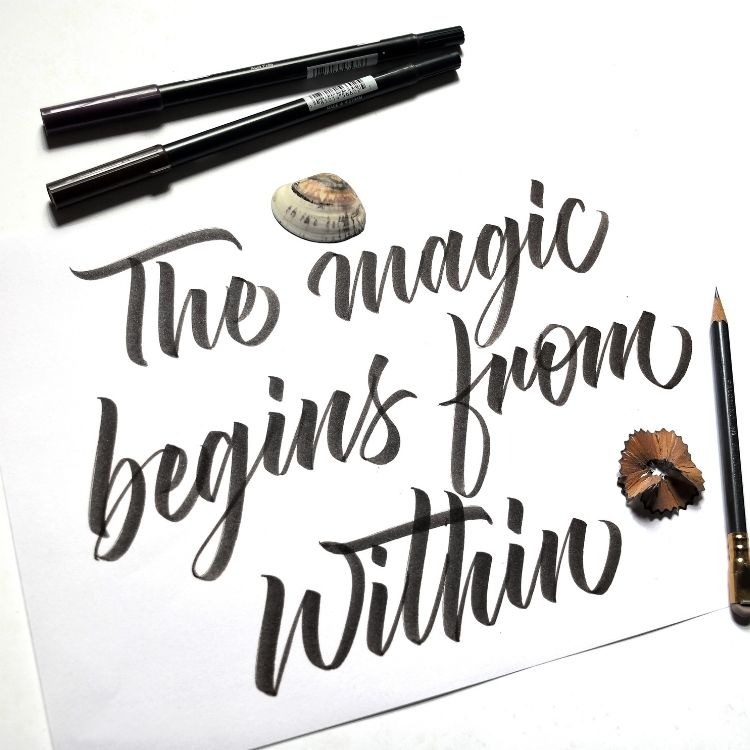 The magic
begins from
Within